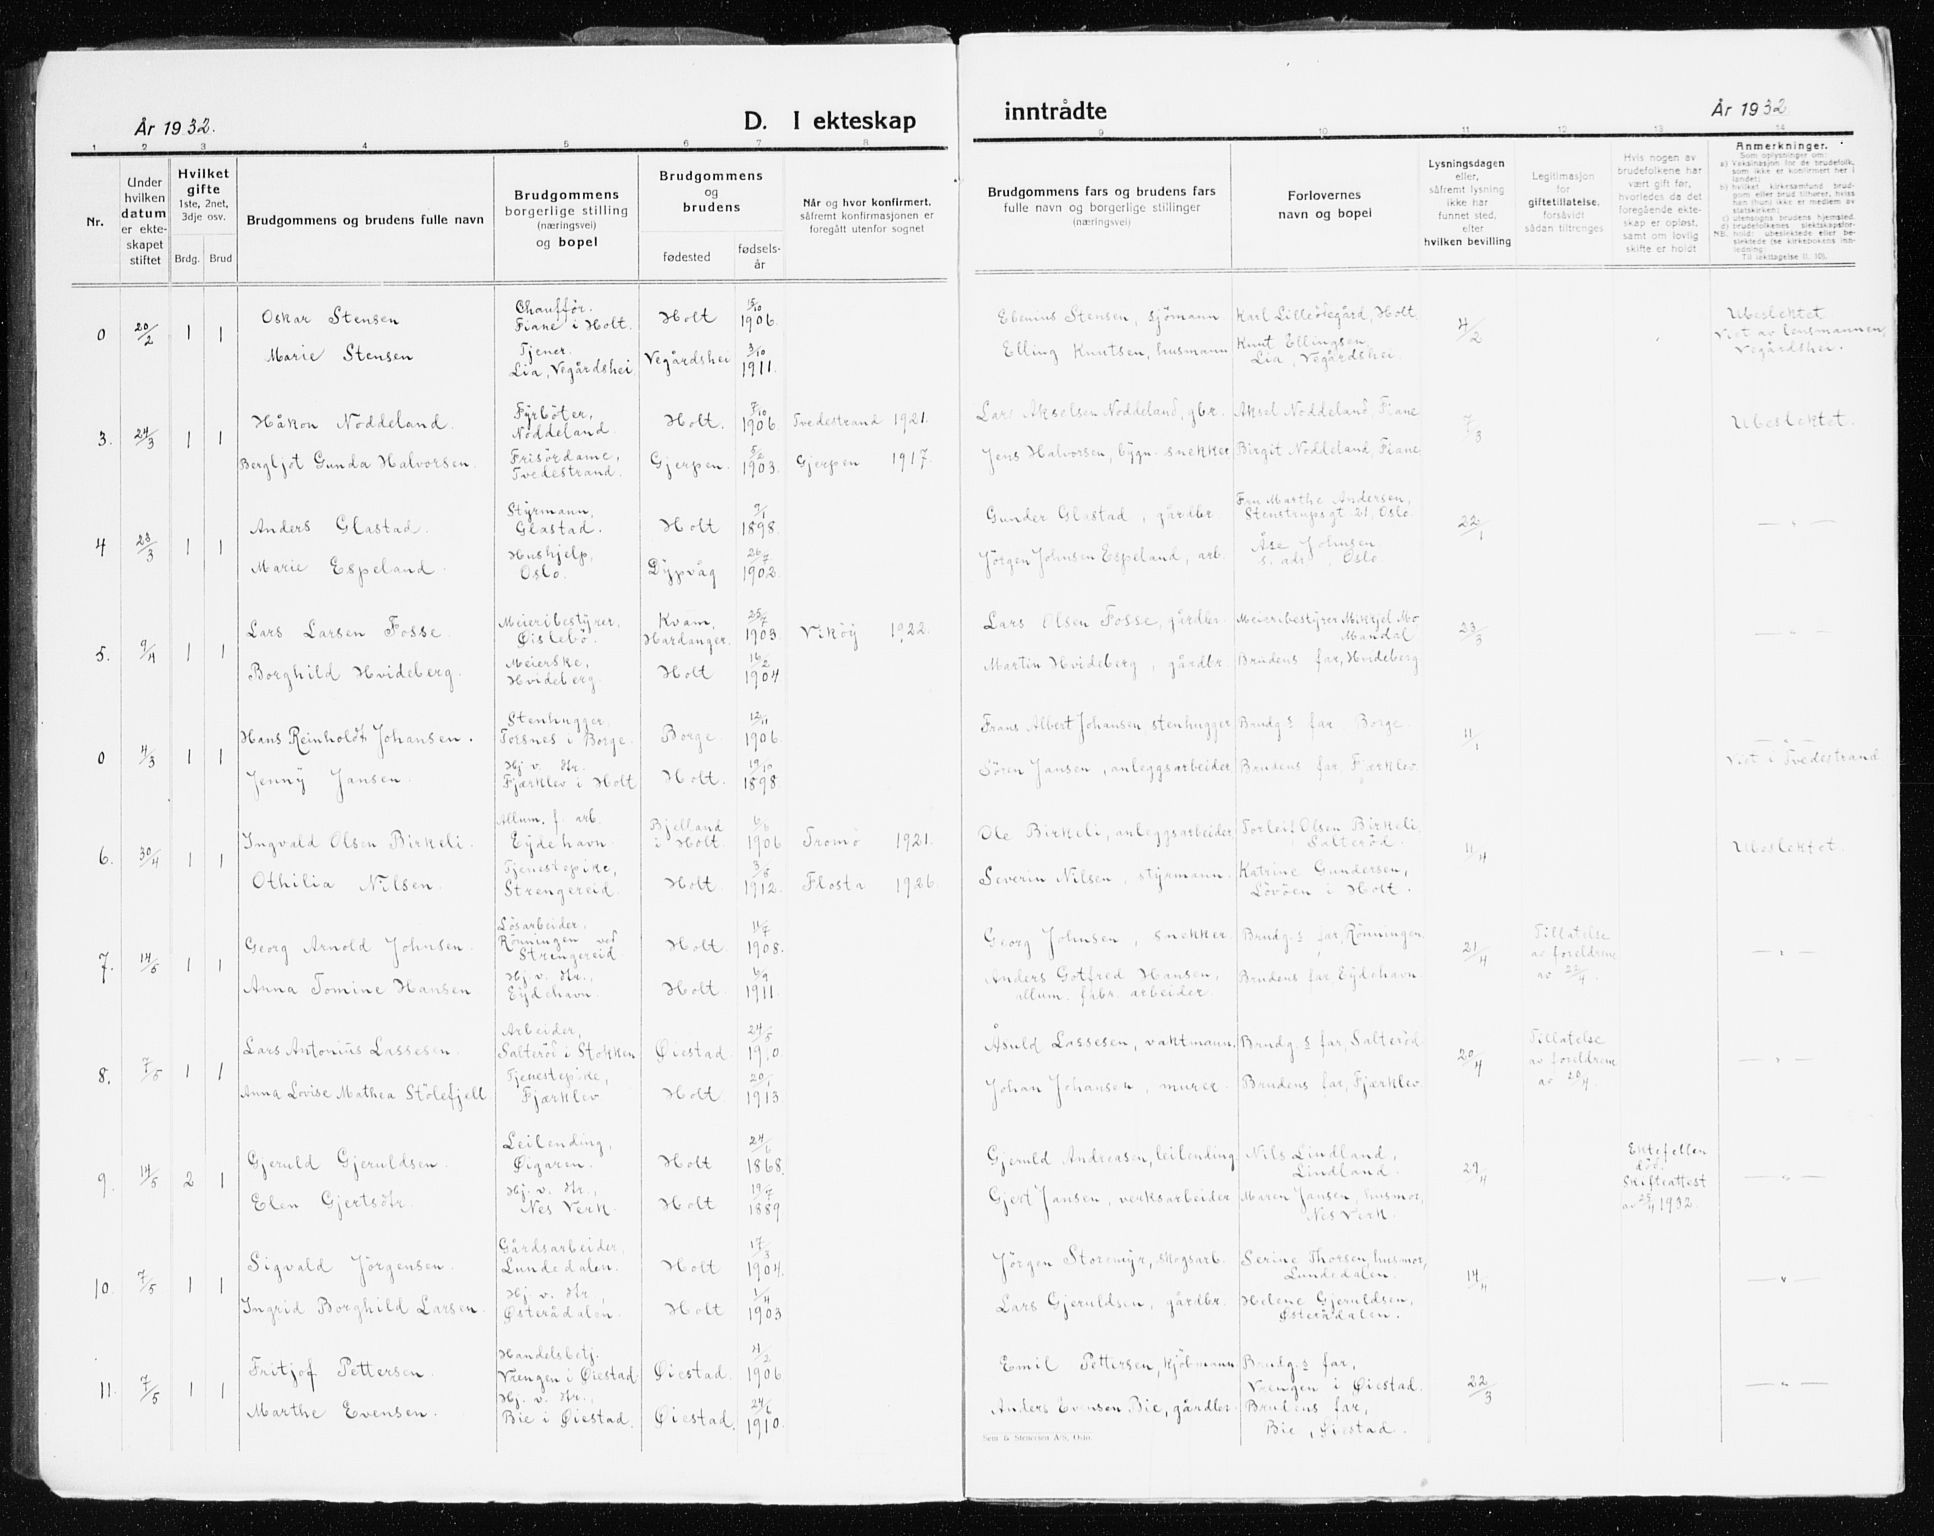 År 1932.
D. I ekteskap
inntrådte
År 1932
1 2 3 4 5 6 7 8 9 10 11 12 13 14
Nr.
Under hvilken datum er ekteskapet stiftet
Hvilket gifte 1ste, 2net, 3dje osv.
Brdg. Brud
Brudgommens og brudens fulle navn
Brudgommens borgerlige stilling (næringsvei) og bopel
Brudgommens og brudens
fødested
fødselsår
Når og hvor konfirmert, såfremt konfirmasjonen er foregått utenfor sognet
Brudgommens fars og brudens fars fulle navn og borgerlige stillinger (næringsvei)
Forlovernes navn og bopel
Lysningsdagen eller, såfremt lysning ikke har funnet sted, efter hvilken bevilling
Legitimasjon for giftetillatelse, forsåvidt sådan tiltrenges
Hvis nogen av brudefolkene har vært gift før, hvorledes da det foregående ekteskap er opløst, samt om lovlig skifte er holdt
Anmerkninger.
Som oplysninger om:
a) Vaksinasjon for de brudefolk, som ikke er konfirmert her i landet;
b) hvilket kirkesamfund brudgom eller brud tilhører, hviss han (hun) ikke er medlem av statskirken;
c) utensogns brudens hjemsted.
d) brudefolkenes slektskapsforhold: ubeslektede eller beslektede (se kirkebokens innledning: Til iakttagelse II, 10).
0 20/2 1 1 Oskar Stensen Chauffør. Fiane i Holt. Holt 15/10 1906. Ebenius Stensen, sjömann Karl Lilleödegård, Holt. 4/2 Ubeslektet. Viet av lensmannen, Vegårdshei.
Marie Stensen Tjener. Lia, Vegårdshei Vegårdshei 3/10 1911. Elling Knutsen, husmann Knut Ellingsen, Lia, Vegårdshei.
3. 24/3 1 1 Håkon Noddeland. Fyrböter, Noddeland. Holt. 7/10 1906. Tvedestrand 1921. Lars Akselsen Noddeland, gbr. Aksel Noddeland, Fiane 7/3 Ubeslektet.
Bergljot Gunda Halvorsen. Frisördame, Tvedestrand. Gjerpen. 5/2 1903. Gjerpen 1917. Jens Halvorsen, bygn. snekker Birgit Noddeland, Fiane
4 23/3 1 1 Anders Glastad. Styrmann, Glastad. Holt 9/1 1898. Gunder Glastad, gårdbr. Fru Marthe Andersen, Stenstrupsgt 21, Oslo. 22/1 — " —
Marie Espeland. Hushjelp, Oslo. Dypvåg 26/7 1902. Jörgen Johnsen Espeland, arb. Åse Johnsen. s. adr., Oslo.
5. 9/4 1 1 Lars Larsen Fosse. Meieribestyrer, Øislebö. Kvam, Hardanger. 25/7 1903. Vikøy 1922. Lars Olsen Fosse, gårdbr. Meieribestyrer Mikkjel Mo Mandal 23/3 — " —
Borghild Hvideberg. Meierske, Hvideberg. Holt 16/2 1904. Martin Hvideberg, gårdbr. Brudens far, Hvideberg
0 4/3 1 1 Hans Reinholdt Johansen. Stenhugger, Torsnes i Borge. Borge. 12/11 1906. Frans Albert Johansen stenhugger Brudg.s far, Borge. 11/1 — " — Viet i Tvedestrand
Jenny Jansen. Hj. v. Hr. Fjærklev i Holt Holt. 19/10 1898. Sören Jansen, anleggsarbeider Brudens far, Fjærklev
6. 30/4 1 1 Ingvald Olsen Birkeli. Allum. f. arb. Eydehavn. Bjelland i Holt. 6/6 1906 Tromø 1921. Ole Birkeli, anleggsarbeider Torleif Olsen Birkeli, Salteröd. 11/4 Ubeslektet.
Othilia Nilsen. Tjenestepike, Strengereid. Holt 3/8 1912. Flosta 1926. Severin Nilsen, styrmann. Katrine Gundersen, Lövöen i Holt.
7. 14/5 1 1 Georg Arnold Johnsen. Lösarbeider, Rönningen ved Strengereid. Holt 11/7 1908. Georg Johnsen, snekker Brudg.s far, Rönningen. 21/4 Tillatelse av foreldrene av 22/4. — " —
Anna Tomine Hansen Hj. v. Hr., Eydehavn. Holt. 6/9 1911. Anders Gotfred Hansen, allum. fabr. arbeider. Brudens far, Eydehavn.
8. 7/5 1 1 Lars Antonius Lassesen. Arbeider, Salteröd i Stokken Øiestad. 24/5 1910. Åsuld Lassesen, vaktmann. Brudg.s far, Salteröd 20/4 Tillatelse av foreldrene av 20/4. — " —
Anna Lovise Mathea Stölefjell. Tjenestepike, Fjærklev. Holt 20/1 1913. Johan Johansen, murer. Brudens far, Fjærklev
9. 14/5 2 1 Gjeruld Gjeruldsen. Leilending, Øigaren. Holt 24/6 1868. Gjeruld Andreasen, leilending Nils Lindland, Lindland. 29/4 Ektefellen död. Skifteattest av 25/4 1932. — " —
Elen Gjertsdtr. Hj. v. Hr., Nes Verk. Holt 19/7 1889 Gjert Jansen, verksarbeider Maren Jansen, husmor, Nes Verk.
10. 7/5 1 1 Sigvald Jörgensen. Gårdsarbeider, Lundedalen. Holt 17/3 1904. Jörgen Storemyr, skogsarb. Serine Thorsen, husmor, Lundedalen. 14/4 — " —
Ingrid Borghild Larsen. Hj. v. Hr., Østerådalen. Holt 1/4 1903 Lars Gjeruldsen, gårdbr. Helene Gjeruldsen, Østerådalen.
11. 7/5 1 1 Fritjof Pettersen. Handelsbetj. Vrengen i Øiestad Øiestad. 4/2 1906 Emil Pettersen, kjöbmann Brudg.s far, Vrengen i Øiestad. 22/3 — " —
Marthe Evensen. Hj. v. Hr., Bie i Øiestad. Øiestad. 24/6 1910. Anders Evensen Bie, gårdbr. Brudens far, Bie, Øiestad.
Sem & Stenersen A/S, Oslo.